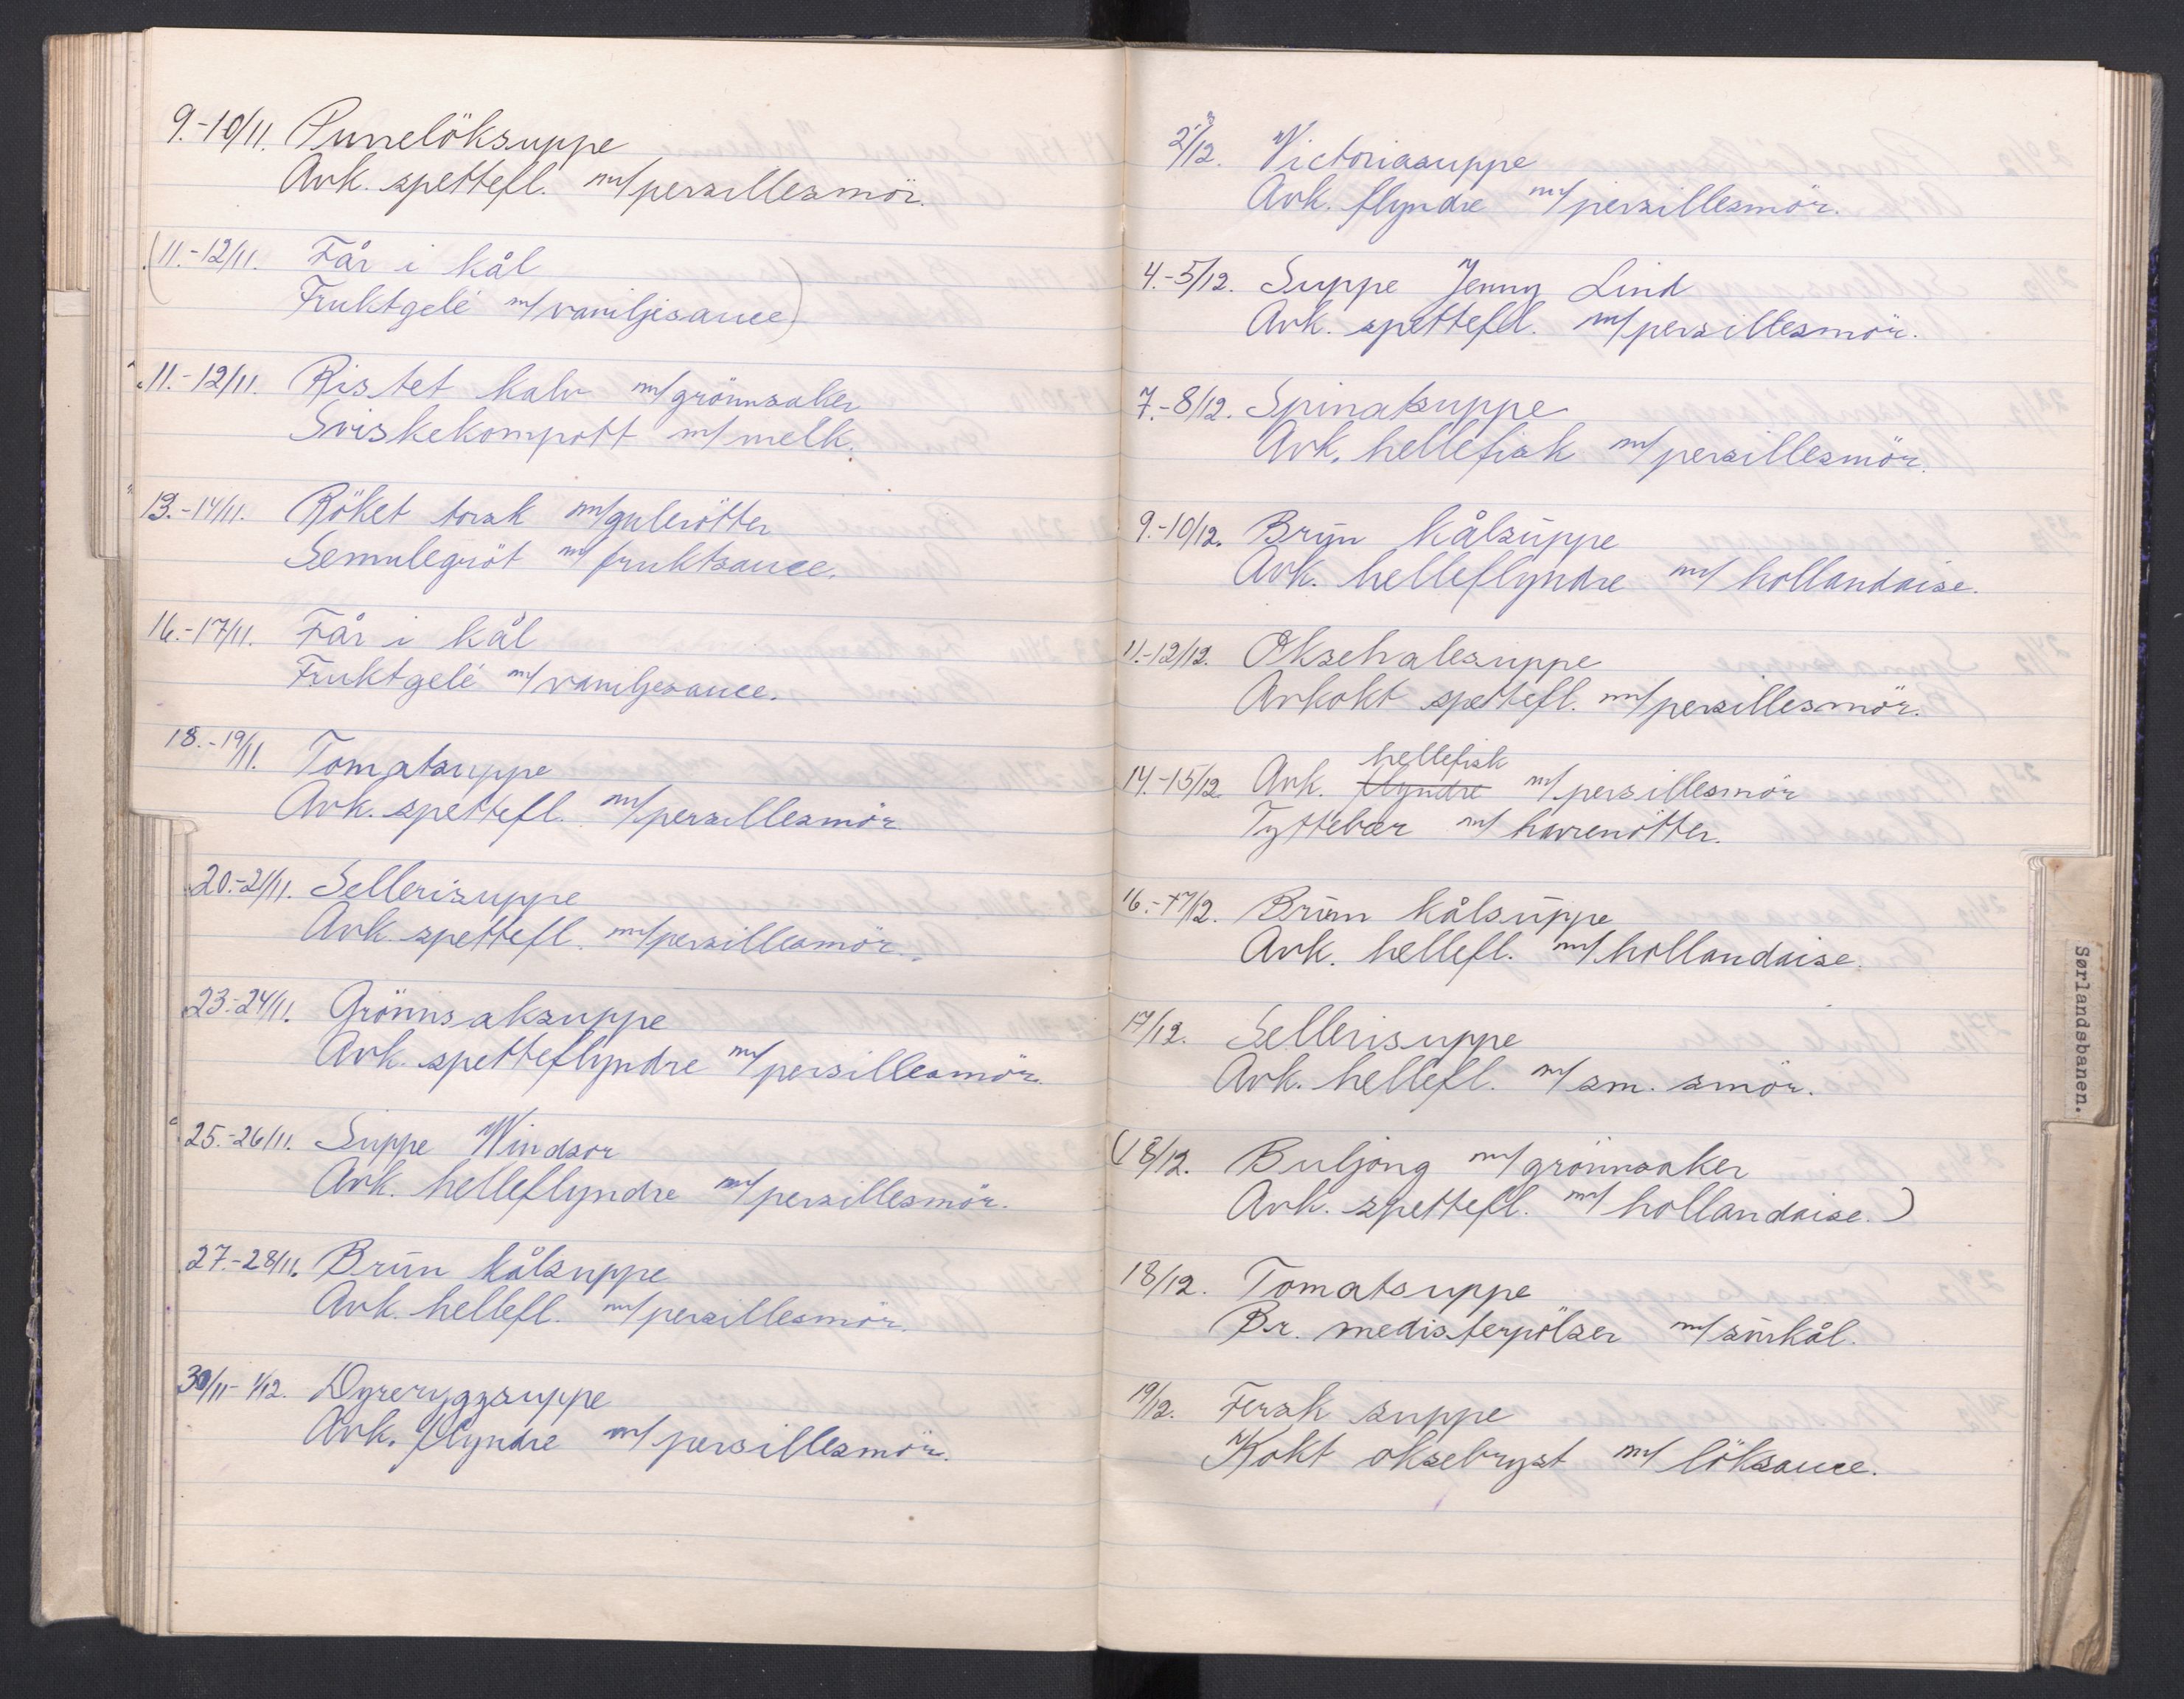 9.-10/11. Purreløksuppe
Avk. spettefl. m/persillesmör.
(11.-12/11. Får i kål
Fruktgelé m/vaniljesauce)
11.-12/11. Ristet kalv m/grönnsaker
Sviskekompott m/melk.
13.-14/11. Röket torsk m/gulerötter
Semulegröt m/fruktsauce.
16.-17/11. Får i kål
Fruktgelé m/vaniljesauce.
18.-19/11. Tomatsuppe
Avk. spettefl. m/persillesmör
20.-21/11. Sellerisuppe
Avk. spettefl. m/persillesmör.
23.-24/11. Grönnsaksuppe
Avk. spetteflyndre m/persillesmör.
25.-26/11. Suppe Windsor
Avk. helleflyndre m/persillesmör.
27.-28/11. Brun kålsuppe
Avk. hellefl. m/persillesmör.
30/11-1/12. Dyreryggsuppe
Avk. flyndre m/persillesmör.
2/12. Victoriasuppe
Avk. flyndre m/persillesmör.
4.-5/12. Suppe Jenny Lind
Avk. spettefl. m/persillesmör.
7.-8/12. Spinatsuppe
Avk. hellefisk m/persillesmör.
9.-10/12. Brun kålsuppe
Avk. helleflyndre m/hollandaise.
11.-12/12. Oksehalesuppe
Avkokt spettefl. m/persillesmör.
hellefisk
14.-15/12 Avk. flyndre m/persillesmör
Tyttebær m/havrenötter.
16.-17/12. Brun kålsuppe
Avk. hellefl. m/hollandaise.
17/12. Sellerisuppe
Avk. hellefl. m/sm. smör.
(18/12. Buljong m/grönnsaker
Avk. spettefl. m/hollandaise.)
18/12. Tomatsuppe
Br. medisterpölser m/surkål.
19/12. Fersk suppe
Kokt oksebryst m/löksauce.
Sørlandsbanen.